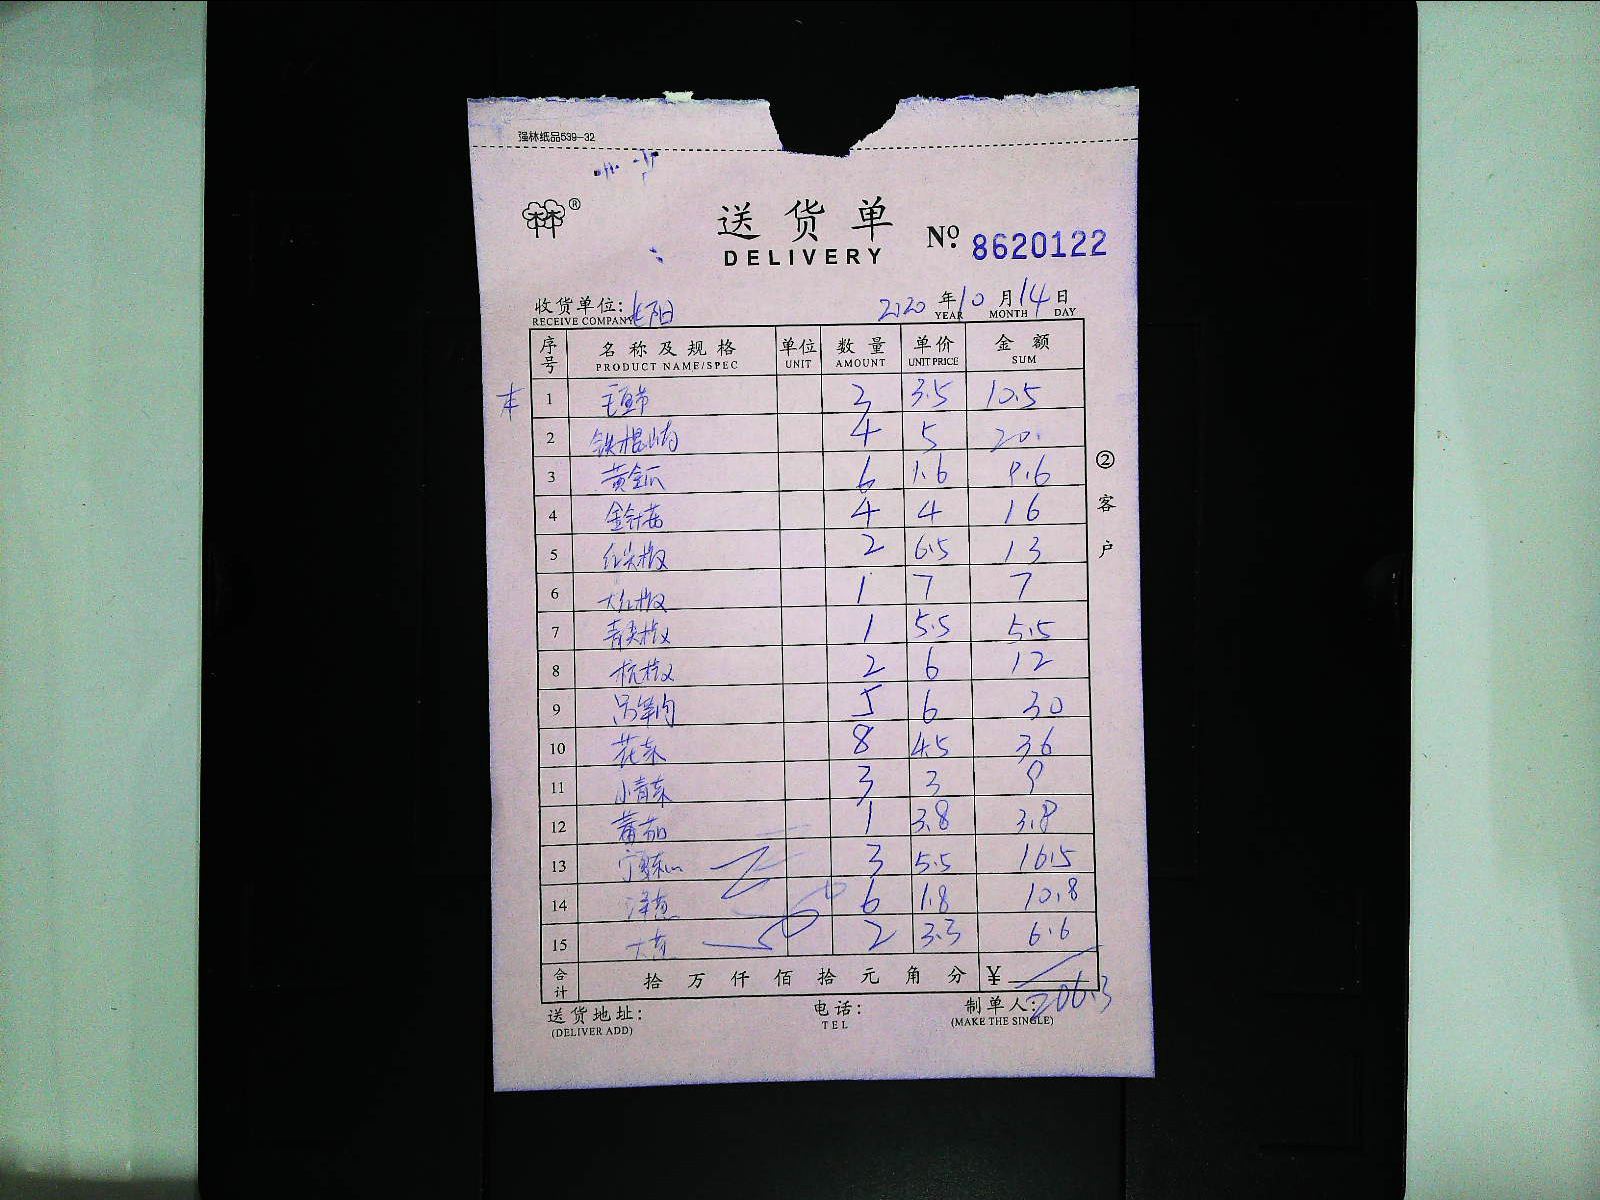 强林纸品539-32
林林®
送货单
DELIVERY
No. 8620122
收货单位: 2020年10月14日
RECEIVE COMPANY YEAR MONTH DAY
序号 名称及规格 单位 数量 单价 金额
PRODUCT NAME/SPEC UNIT AMOUNT UNIT PRICE SUM
本 1 毛豆节 3 3.5 10.5
2 铁棍山药 4 5 20.
3 黄金瓜 6 1.6 9.6
4 金针菇 4 4 16
5 红尖椒 2 6.5 13
6 大红椒 1 7 7
7 青尖椒 1 5.5 5.5
8 杭椒 2 6 12
9 5 6 30
10 花菜 8 4.5 36
11 小青菜 3 3 9
12 蕃茄 1 3.8 3.8
13 3 5.5 16.5
14 洋葱 6 1.8 10.8
15 大葱 2 3.3 6.6
合计 拾万仟佰拾元角分 ¥ 206.3
送货地址: 电话: 制单人:
(DELIVER ADD) TEL (MAKE THE SINGLE)
②客户